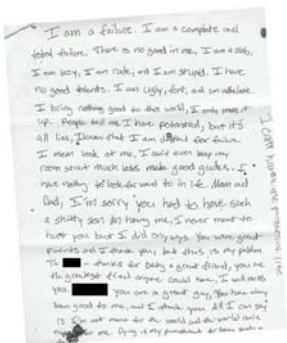 I am a failure. I am a complete and
total failure. There is no good in me, I am a slob,
I am lazy, I am rude, and I am stupid. I have
no good talents. I am ugly, fat, and an
I bring nothing good to this world, I only mess it
up. People tell me I have potential, but it's
all lies, I know that I am for failure.
I mean look at me, I can't even keep my
room straight much less make good grades. I
have nothing to look forward to in life. Mom and
Dad, I'm sorry you had to have such
a shitty son I never meant to
hurt you but I did anyways. You were great
parents and I thank you, but this is my problem
To - thanks for being a great friend, you are
the greatest friend anyone could have, I will miss
you. you are a great guy, you have always
been good to me, and I thank you. All I can say
is I'm not meant for the world and the world
meant for me. Dying is my punishment for being such